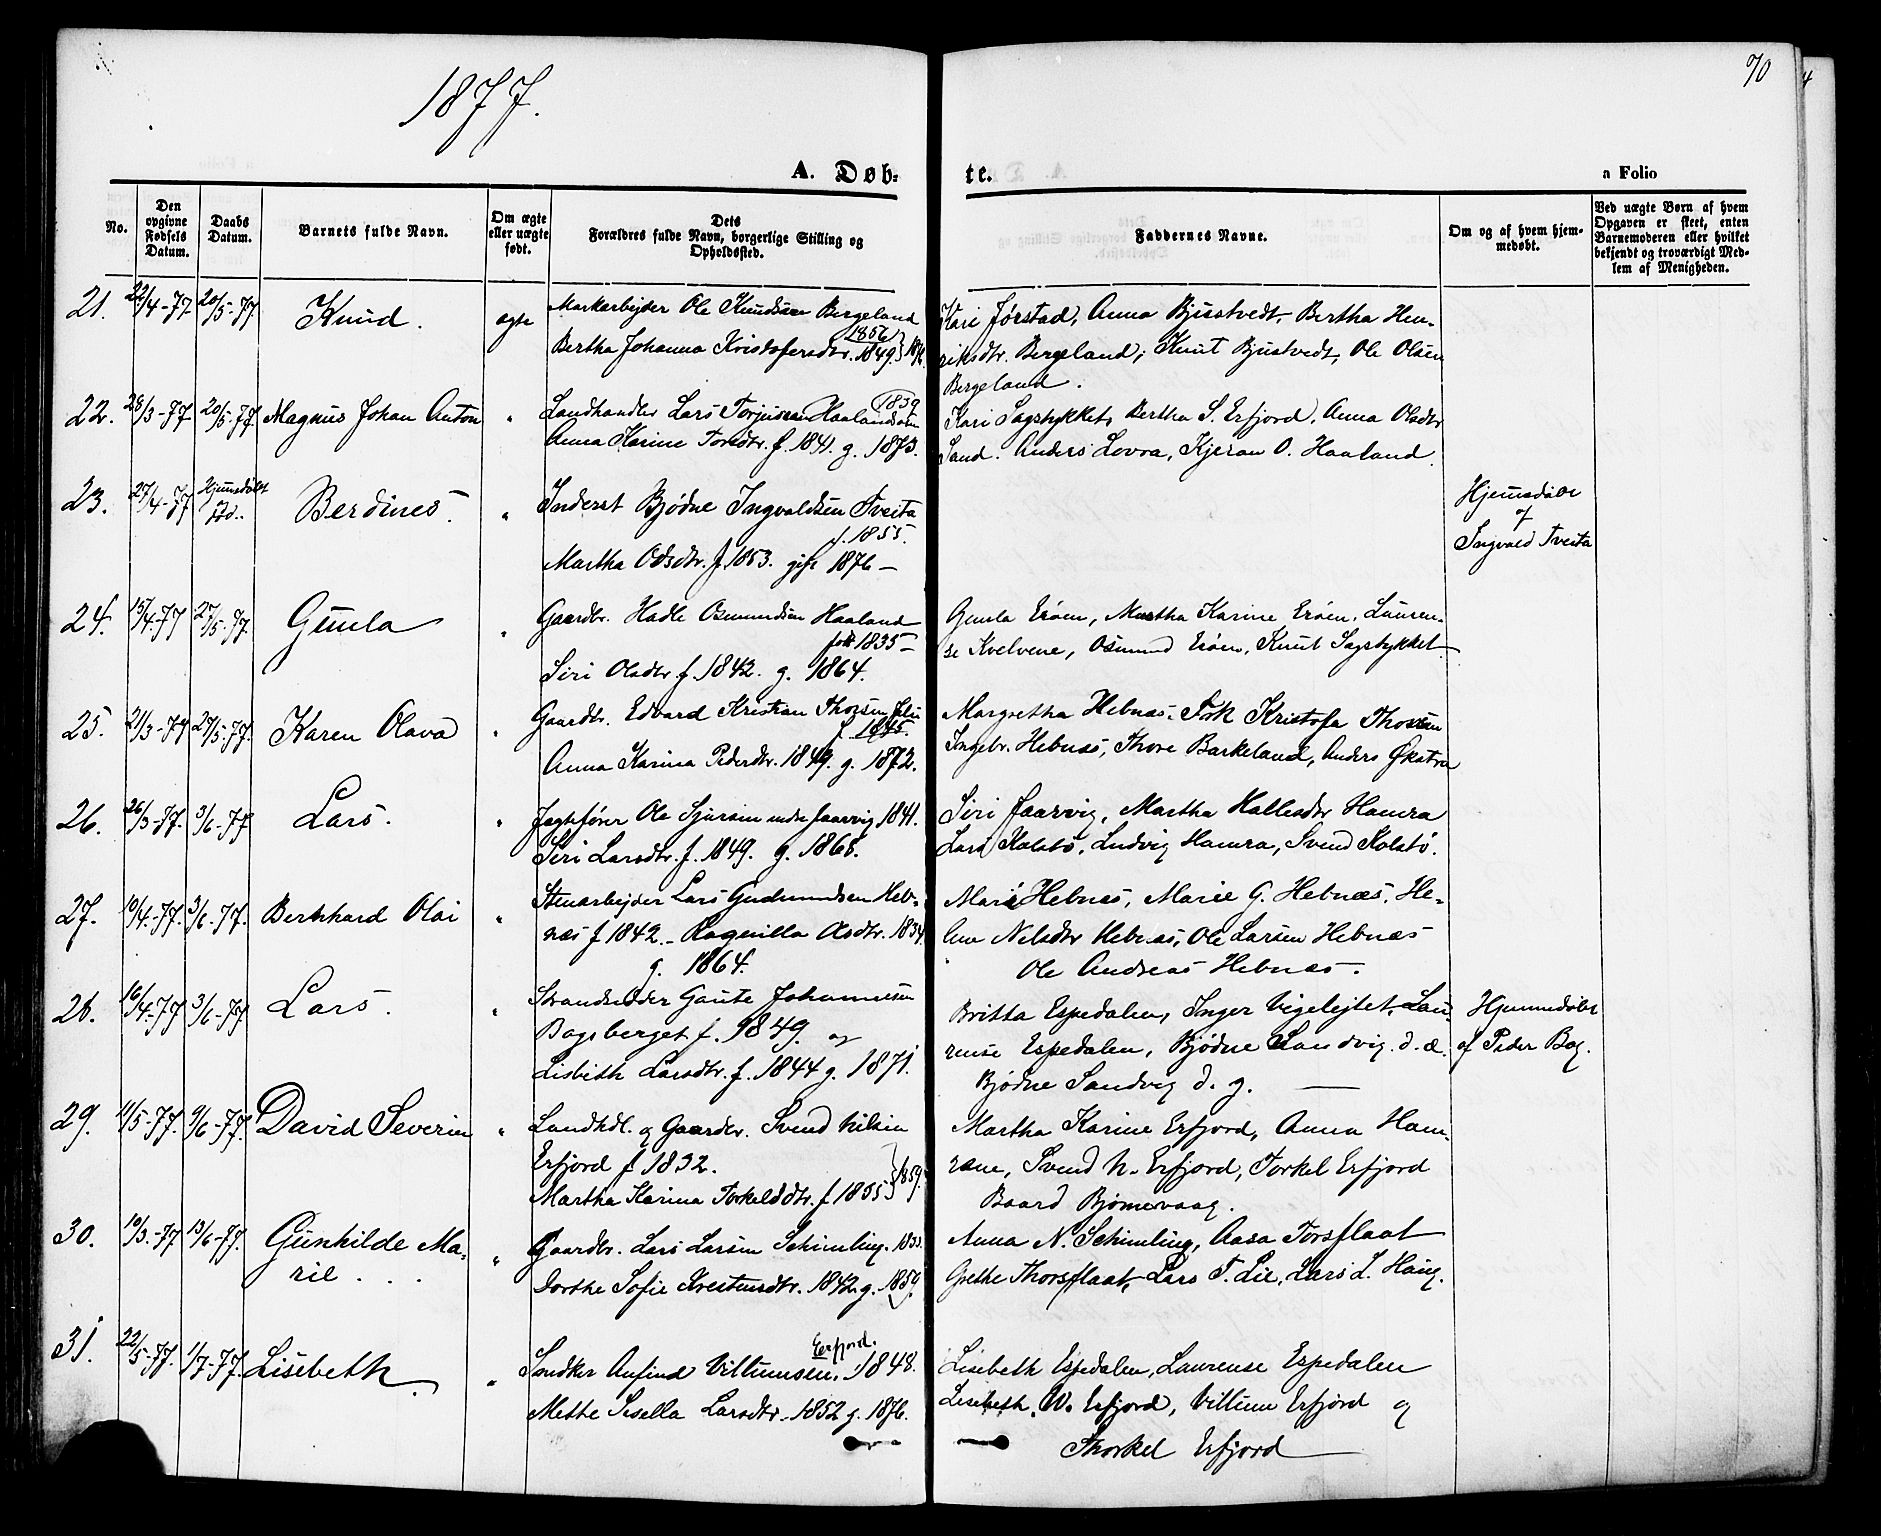 1877.
70
A. Døb-
te.
a Folio
No.
Den opgivne Fødsels Datum.
Daabs Datum.
Barnets fulde Navn.
Om ægte eller uægte født.
Dets Forældres fulde Navn, borgerlige Stilling og Opholdssted.
Faddernes Navne.
Om og af hvem hjemmedøbt.
Ved uægte Børn af hvem Opgaven er skeet, enten Barnemoderen eller hvilket bekjendt og troværdigt Medlem af Menigheden.
21. 22/4-77 20/5-77 Knud. ægte Markarbejder Ole Knudsen Bergeland
1856
Bertha Johanna Kristofersdtr. 1849.
Kari Jørstad, Anna Bjustvedt, Bertha Hen-
riksdtr. Bergeland, Knut Bjustvedt, Ole Olsen
Bergeland.
22. 28/3-77 20/5-77 Magnus Johan Anton " Landhandler Lars Torjussen Haaland
1839
Anna Karine Torsdtr. f. 1841. g. 1873.
Kari Sagstykket, Bertha S. Erfjord, Anna Olsdtr
Sand. Anders Lovra, Kjeran O. Haaland.
23. 27/4-77 Hjemmedøbt Berdines. " Inderst Bjødne Ingvaldsen Tveita
f. 1855.
Martha Odsdtr. f. 1853. gift 1876 -
Hjemmedøbt
af
Ingvald Tveita
24. 15/4-77 27/5-77. Gunla " Gaardbr. Hadle Osmundsen Haaland
født 1835 -
Siri Olsdtr f. 1842. g. 1864.
Gunla Erøen, Martha Karine Erøen, Lauren-
se Kvelvene, Osmund Erøen, Knut Sagstykket
25. 21/3-77 27/5-77. Karen Olava " Gaardbr. Edvard Kristian Thorsen
f. 1845.
Anna Karina Pedersdtr. 1849. g. 1872.
Margretha Hebnæs. Frk Kristofa Thorsen
Ingebr. Hebnæs, Thore Barkeland, Anders Økstra
26. 26/3-77. 3/6-77 Lars. " Jagtfører Ole Sjursen indre Jaarvig 1841.
Siri Larsdtr. f. 1849. g. 1868.
Siri Jaarvig, Martha Hallesdtr Hamra
Lars Kolstø, Ludvig Hamra, Svend Kolstø.
27. 10/4-77. 3/6-77. Bernhard Olai " Stenarbejder Lars Gudmundsen Heb-
næs f 1842. - Ragnilla Olsdtr. 1834
g. 1864.
Mari Hebnæs, Marie G. Hebnæs. He-
lene Nelsdtr Hebnæs, Ole Larsen Hebnæs
Ole Andreas Hebnæs.
28. 16/4-77 3/6-77 Lars. " Strandsidder Gaute Johannesen
Bagsberget f. 1849. og
Lisbeth Larsdtr. f. 1844 g. 1871.
Britta Espedalen, Inger Vigelejtet, Lau-
rense Espedalen, Bjødne Sandvig. d. æ.
Bjødne Sandvig d. y.
Hjemmedøbt
af Peder Bog.
29. 11/5-77. 9/6-77. David Severin " Landhdl. og Gaardbr. Svend Nilsen
Erfjord f 1832.
Martha Karina Torkelsdtr. f 1835 1859.
Martha Karine Erfjord, Anna Ham-
rane, Svend N. Erfjord, Torkel Erfjord
Baard Bjørnevaag.
30. 10/3-77 13/6-77. Gunhilde Ma-
rie . . . " Gaardbr. Lars Larsen Schimling. 1833.
Dorthe Sofie Krestensdtr. 1842 g. 1859.
Anna N. Schimling, Aasa Torsflaat
Grethe Thorsflaat, Lars T. Lie, Lars L. Haug.
31. 22/5-77. 1/7-77. Lisebeth. " Snedker Anfind Villumsen, Erfjord. 1848.
Mette Sisella Larsdtr. 1852 g. 1876.
Lisebeth Espedalen, Laurense Espedalen
Lisebeth W. Erfjord, Villum Erfjord og
Thorkel Erfjord